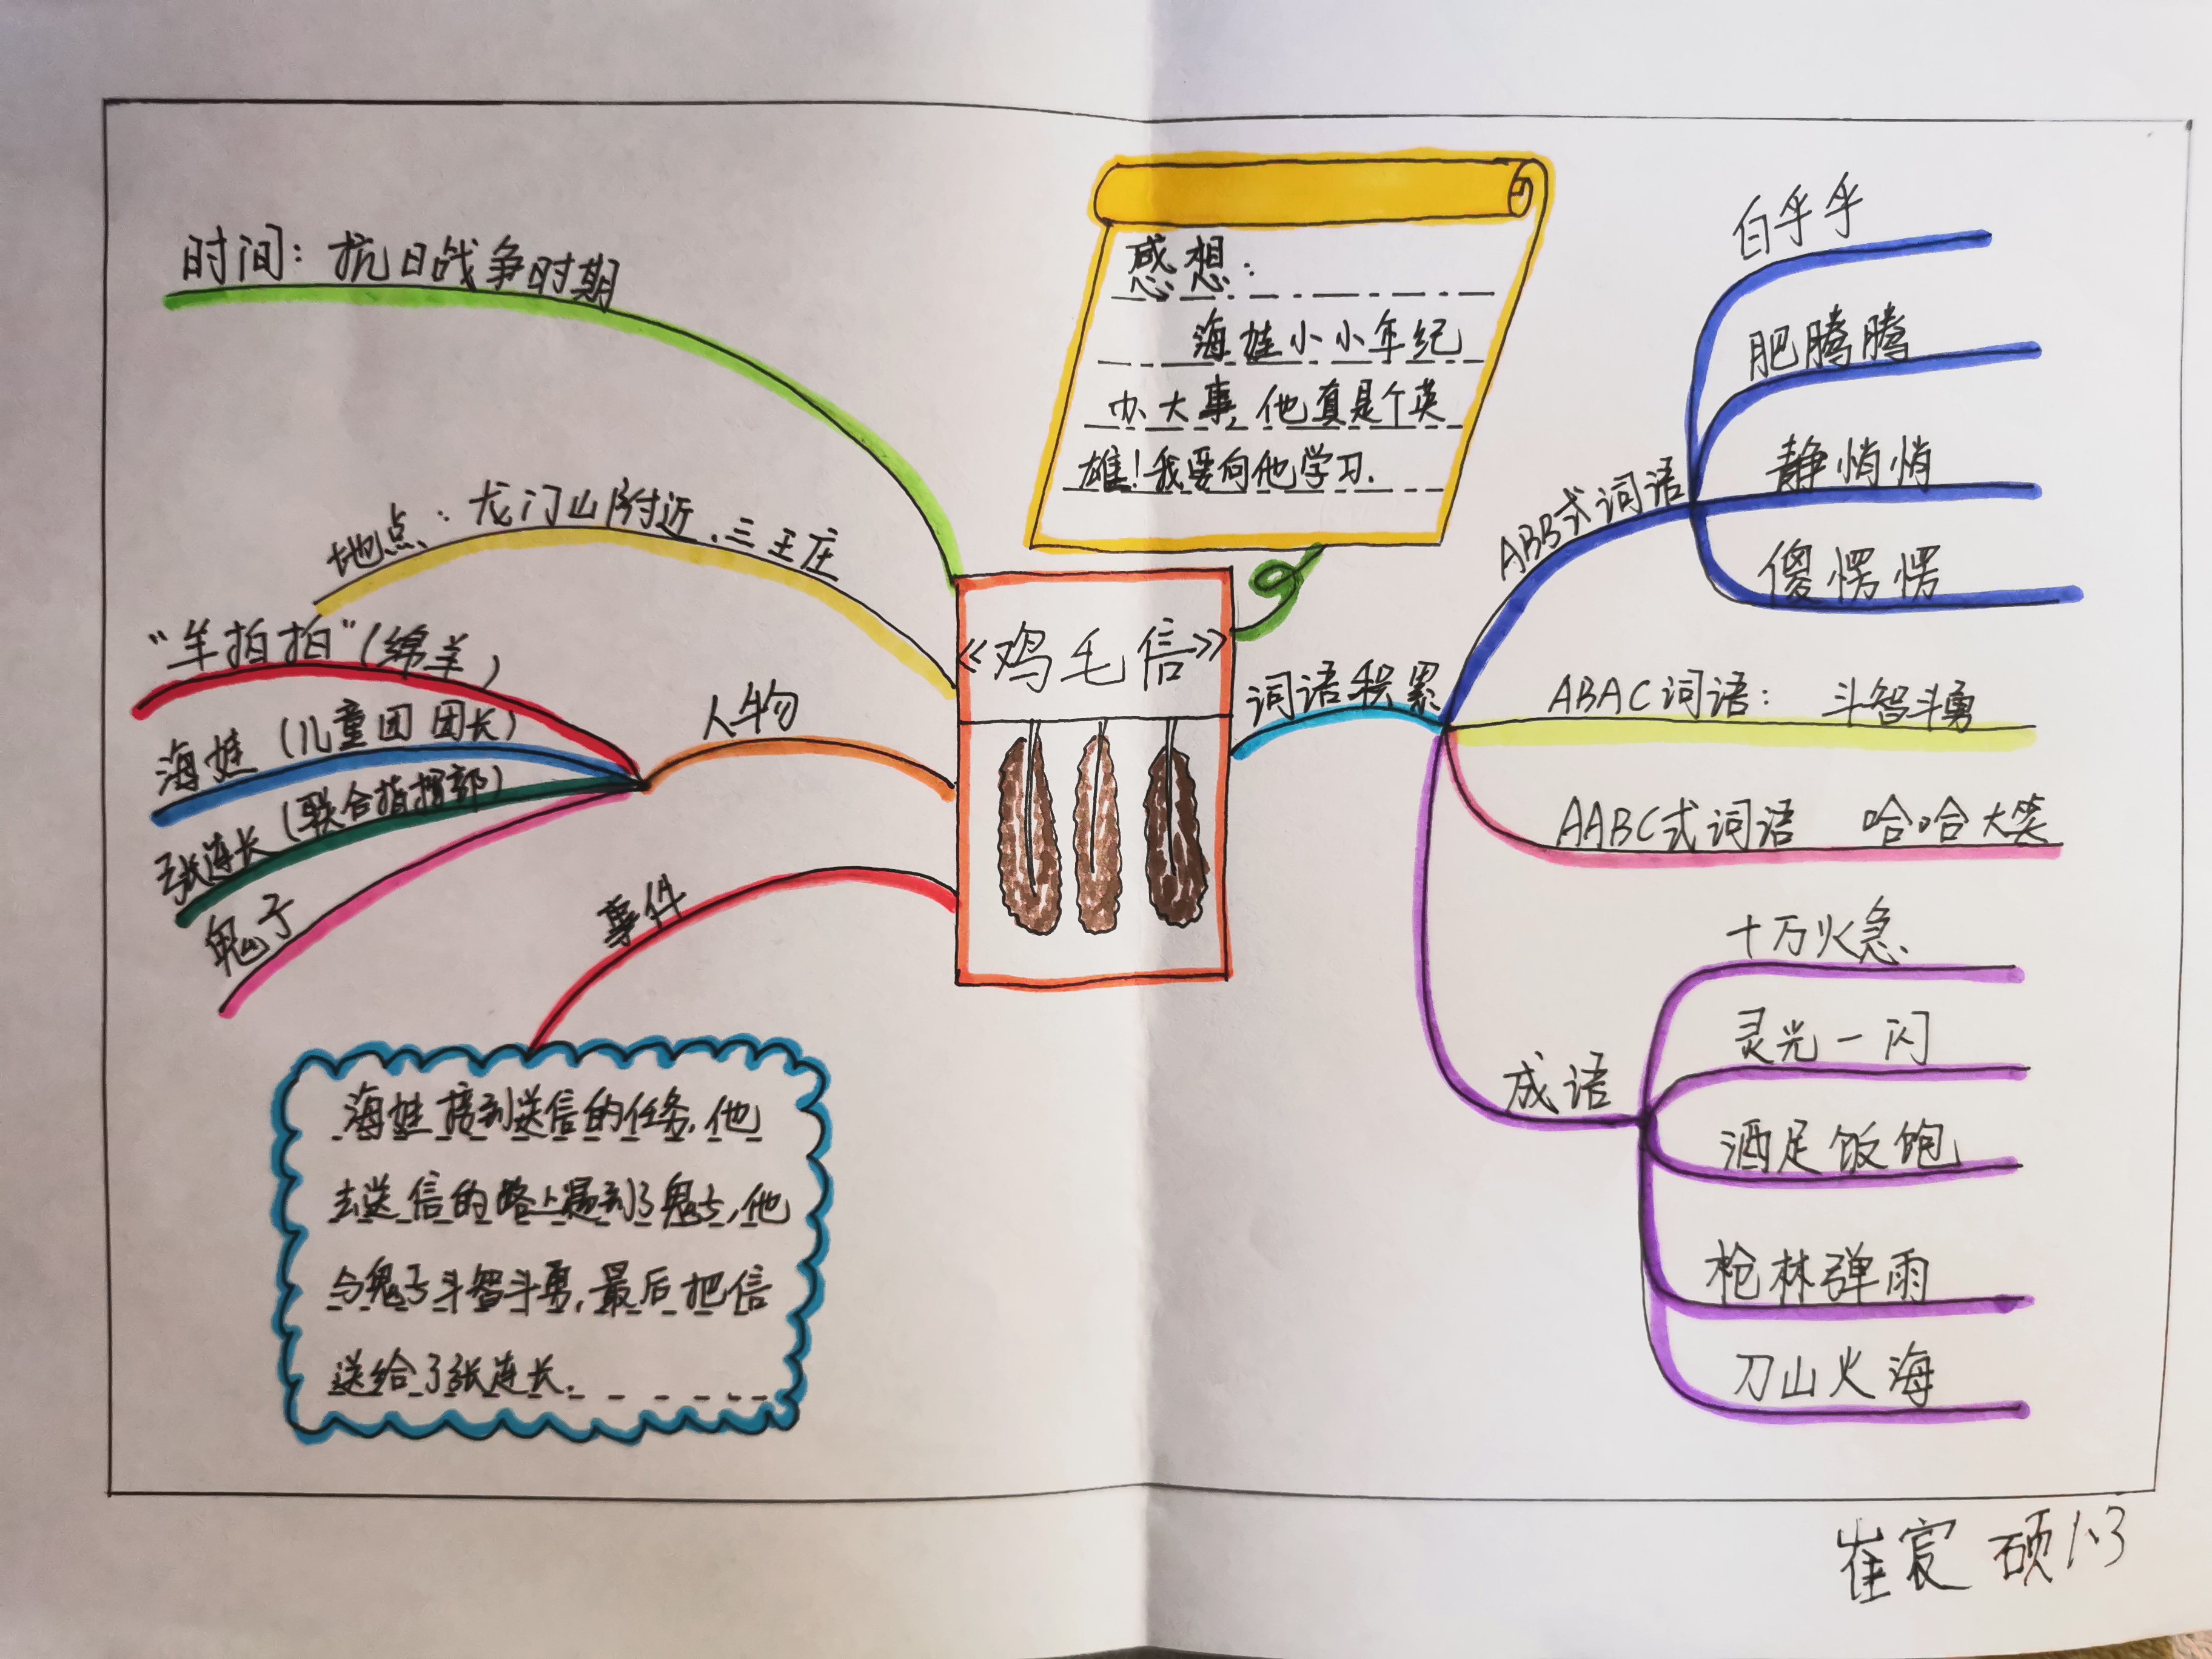 时间：抗日战争时期
地点：龙门山附近、三王庄
人物
“羊拍拍”（绵羊）
海娃（儿童团团长）
张连长（联合指挥部）
鬼子
事件
海娃接到送信的任务，他
去送信的路上遇到了鬼子，他
与鬼子斗智斗勇，最后把信
送给了张连长。
《鸡毛信》
感想：
海娃小小年纪
办大事，他真是个英
雄！我要向他学习.
词语积累
ABB式词语
白乎乎
肥腾腾
静悄悄
傻愣愣
ABAC词语：斗智斗勇
AABC式词语 哈哈大笑
成语
十万火急
灵光一闪
酒足饭饱
枪林弹雨
刀山火海
崔宸硕1、3